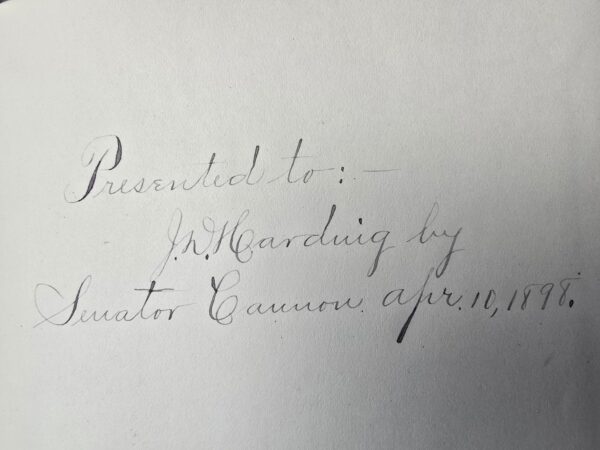 Presented to:—
J.W. Harding by
Senator Cannon. Apr. 10, 1898.